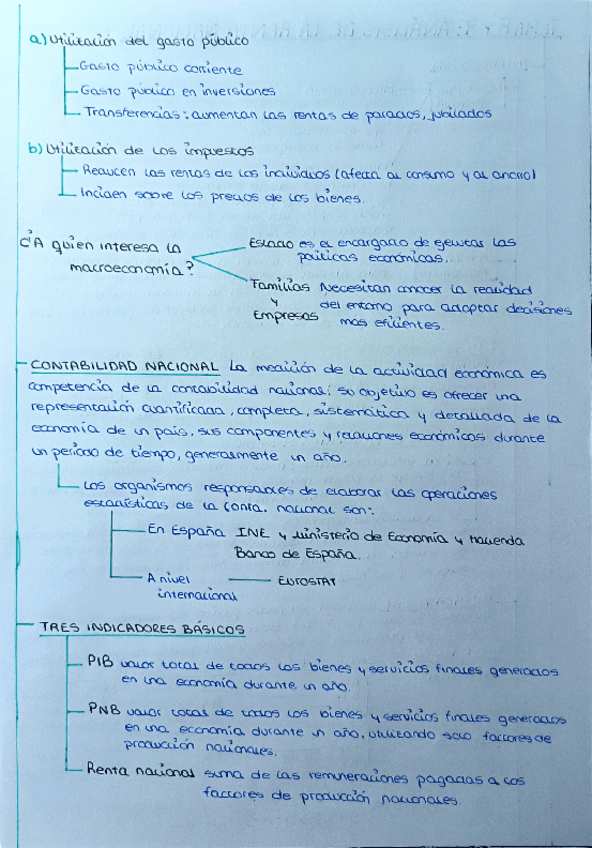 a) Utilización del gasto público
Gasto público corriente
Gasto público en inversiones
Transferencias: aumentan las rentas de parados, jubilados
b) Utilización de los impuestos
Reducen las rentas de los individuos (afecta al consumo y al ahorro)
Inciden sobre los precios de los bienes.
¿A quien interesa la
macroeconomía?
Estado es el encargado de ejecutar las
políticas económicas.
Familias Necesitan conocer la realidad
y del entorno para adoptar decisiones
Empresas más eficientes.
CONTABILIDAD NACIONAL La medición de la actividad económica es
competencia de la contabilidad nacional; su objetivo es ofrecer una
representación cuantificada, completa, sistemática y detallada de la
economía de un país, sus componentes y relaciones económicas durante
un periodo de tiempo, generalmente un año.
Los organismos responsables de elaborar las operaciones
estadísticas de la conta. nacional son:
En España INE y Ministerio de Economía y Hacienda
Banco de España.
A nivel EUROSTAT
internacional
TRES INDICADORES BÁSICOS
PIB valor total de todos los bienes y servicios finales generados
en una economía durante un año.
PNB valor total de todos los bienes y servicios finales generados
en una economía durante un año, utilizando solo factores de
producción nacionales.
Renta nacional suma de las remuneraciones pagadas a los
factores de producción nacionales.